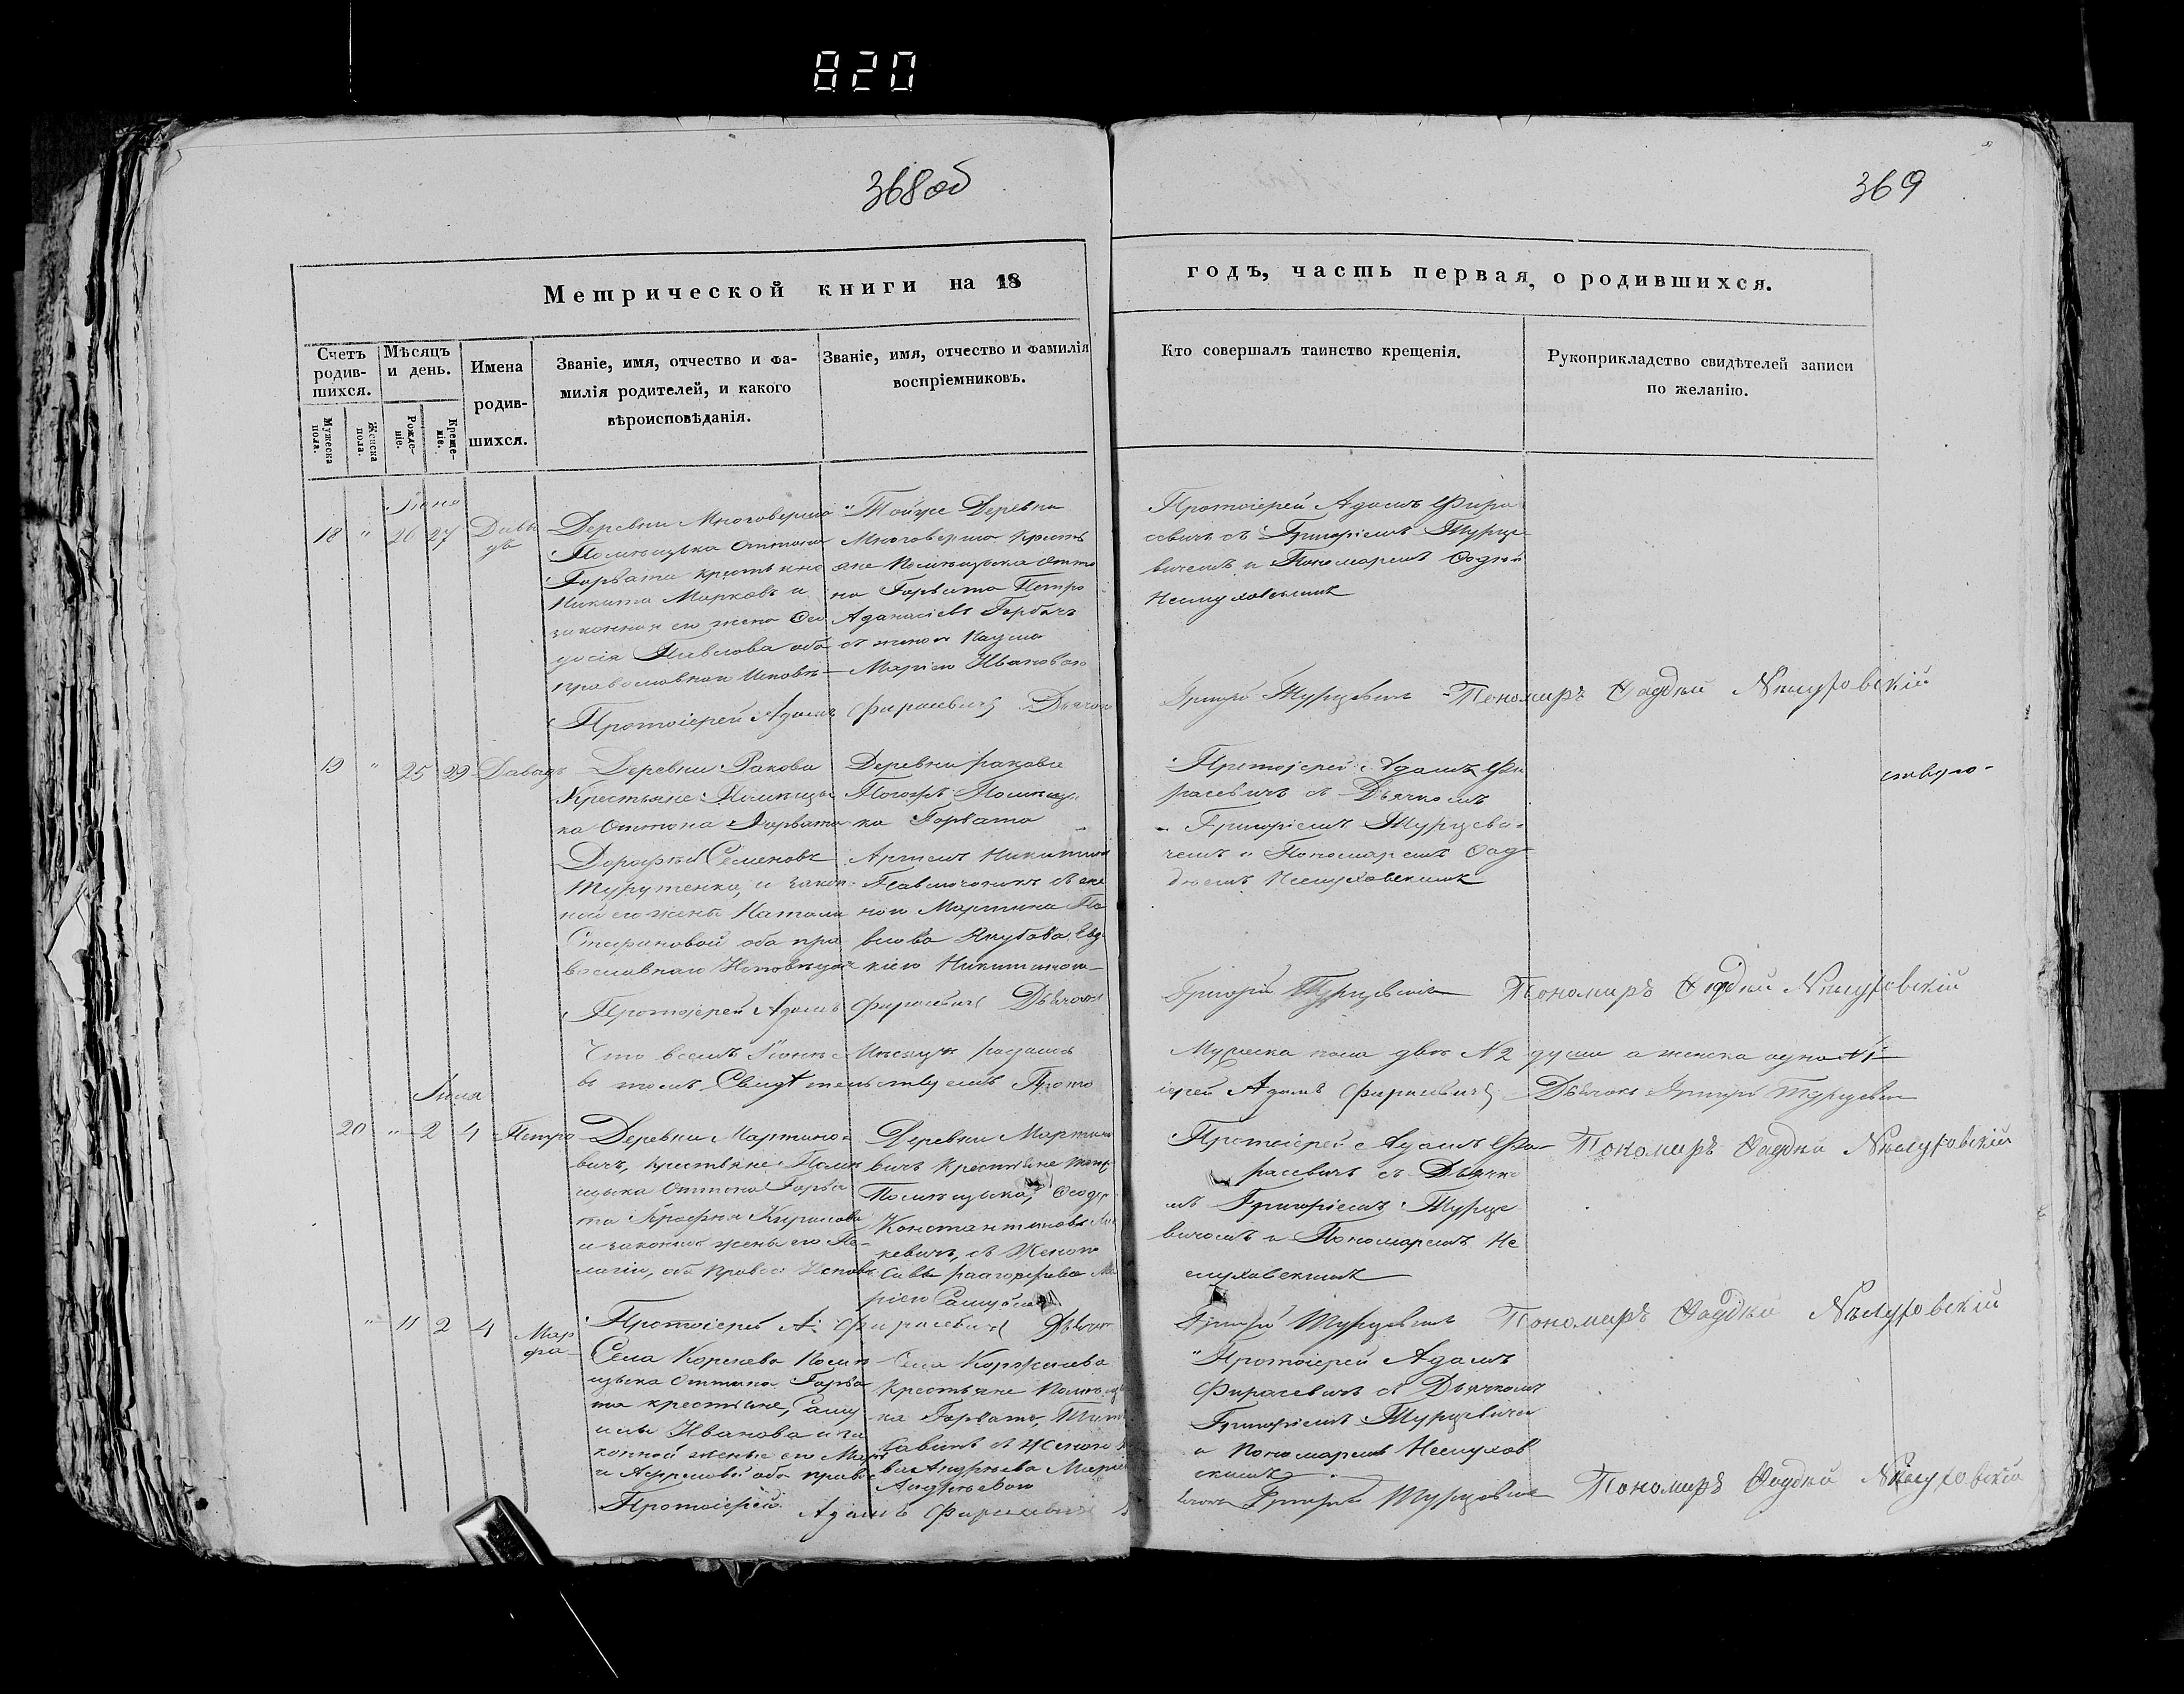 820
368об
369
Метрической книги на 18
годъ, часть первая, о родившихся.
Счетъ родив-шихся.
Мѣсяцъ и день.
Имена родив-шихся.
Званіе, имя, отчество и фа-
милія родителей, и какого
вѣроисповѣданія.
Званіе, имя, отчество и фамилія
воспріемниковъ.
Кто совершалъ таинство крещенія.
Рукоприкладство свидѣтелей записи
по желанію.
Мужеска пола.
Женска пола.
Рожде-ніе.
Креще-ніе.
Іюня
18 " 26 27 Давы
дъ
Деревни Многоверша
Помѣщика Оттона
Горвата
Никита Марковъ и
законная его жена Ѳео
досія Павлова оба
православнаго Исповѣ
"Тойже Деревни
Многоверша Кресть
яне Помѣщика Отто
на Горвата Петро
Аѳанасіевъ Горбачъ
съ женою Наума
Маріею Ивановою
Протоіерей Адамъ Фира
севичъ съ Григоріемъ Турце
вичемъ и Пономаремъ Ѳадѣй
Неслуховскимъ
Протоіерей Адамъ Фирасевичъ Дьячокъ
Григорій Турцевичъ Пономаръ Ѳадѣй Нѣслуховскій
19 " 25 29 Давыдъ
Деревни Ракова
Крестьяне Помѣщи
ка Оттона Горвата
Дорофѣй Семеновъ
и закон
ной его жены Наталіи
Стефановой оба пра
вославнаго Исповѣда
Деревни Ракова
Помѣщи
ка Горвата
Артемъ Никитинъ
съ же
ною Мартина Па
влова Евд
кіею Никитиною
Протоіерей Адамъ Фи
расевичъ съ Дьячкомъ
Григоріемъ Турцеви-
чемъ и Пономаремъ Ѳад
дѣемъ Неслуховскимъ
Протоіерей Адамъ Фирасевичъ Дьячокъ
Григорій Турцевичъ Пономаръ Ѳадѣй Нѣслуховскій
Что всемъ Іюнѣ Мѣсяцѣ родилось
Мужеска пола двѣ №2 души а женска одна №1
въ томъ Свидѣтельствуемъ Прото
іерей Адамъ Фирасевичъ Дьячокъ Григорій Турцевичъ
Іюля
20 " 2 4 Петро
Деревни Мартино
вичъ, Крестьяне Помѣ
щика Оттона Горва
та Кирилова
и законной жены его Пе
лагіи, оба Правос Исповѣ
Деревни Мартин
вичъ Крестьяне
Помѣщика, Ѳеодр
Константиновъ
кевичъ, съ Женою
Савы Ма
ріею
Протоіерей Адамъ Фи
расевичъ съ Дьячко
мъ Григоріемъ Турце
вичемъ и Пономаремъ Не
слуховскимъ
Пономаръ Ѳадѣй Нѣслуховскій
Протоіерей А. Фирасевичъ Дьячокъ
Григорій Турцевичъ Пономаръ Ѳадѣй Нѣслуховскій
" 11 2 4 Мар
фа
Села Коренева Помѣ
щика Оттона Горва
та крестьяне, Саму
илы Иванова и за
конной жены его Мар
оба прав
Села Коренева
Крестьяне Помѣщ
ка Горвата,
Савинъ съ Женою
Андрѣева Маріею
Андрѣевою
Протоіерей Адамъ
Фирасевичъ съ Дьячкомъ
Григоріемъ Турцевичемъ
и Пономаремъ Неслухов
скимъ
Протоіерей Адамъ Фирасевичъ
Григорій Турцевичъ Пономаръ Ѳадѣй Нѣслуховскій